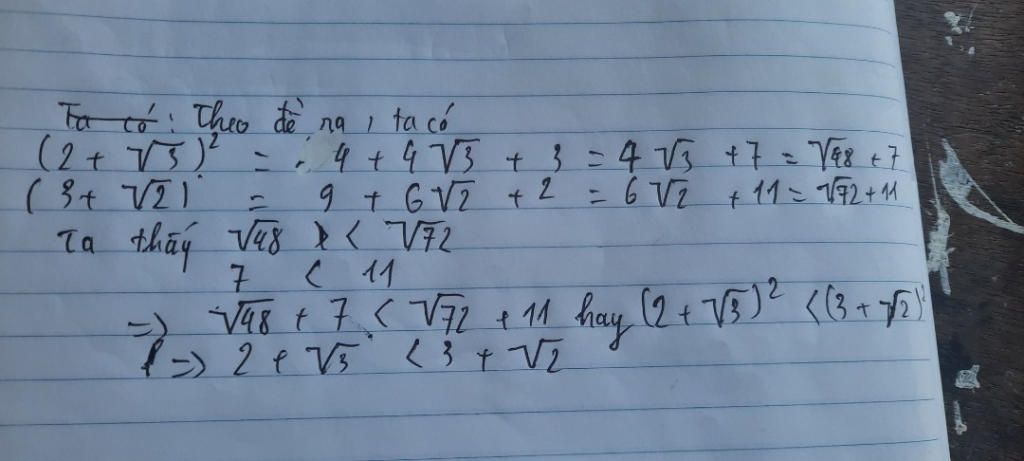 Ta có: Theo đề ra, ta có
(2 + √3)² = 4 + 4√3 + 3 = 4√3 + 7 = √48 + 7
(3 + √2) = 9 + 6√2 + 2 = 6√2 + 11 = √72 + 11
Ta thấy √48 < √72
7 < 11
=> √48 + 7 < √72 + 11 hay (2 + √3)² < (3 + √2)²
=> 2 + √3 < 3 + √2